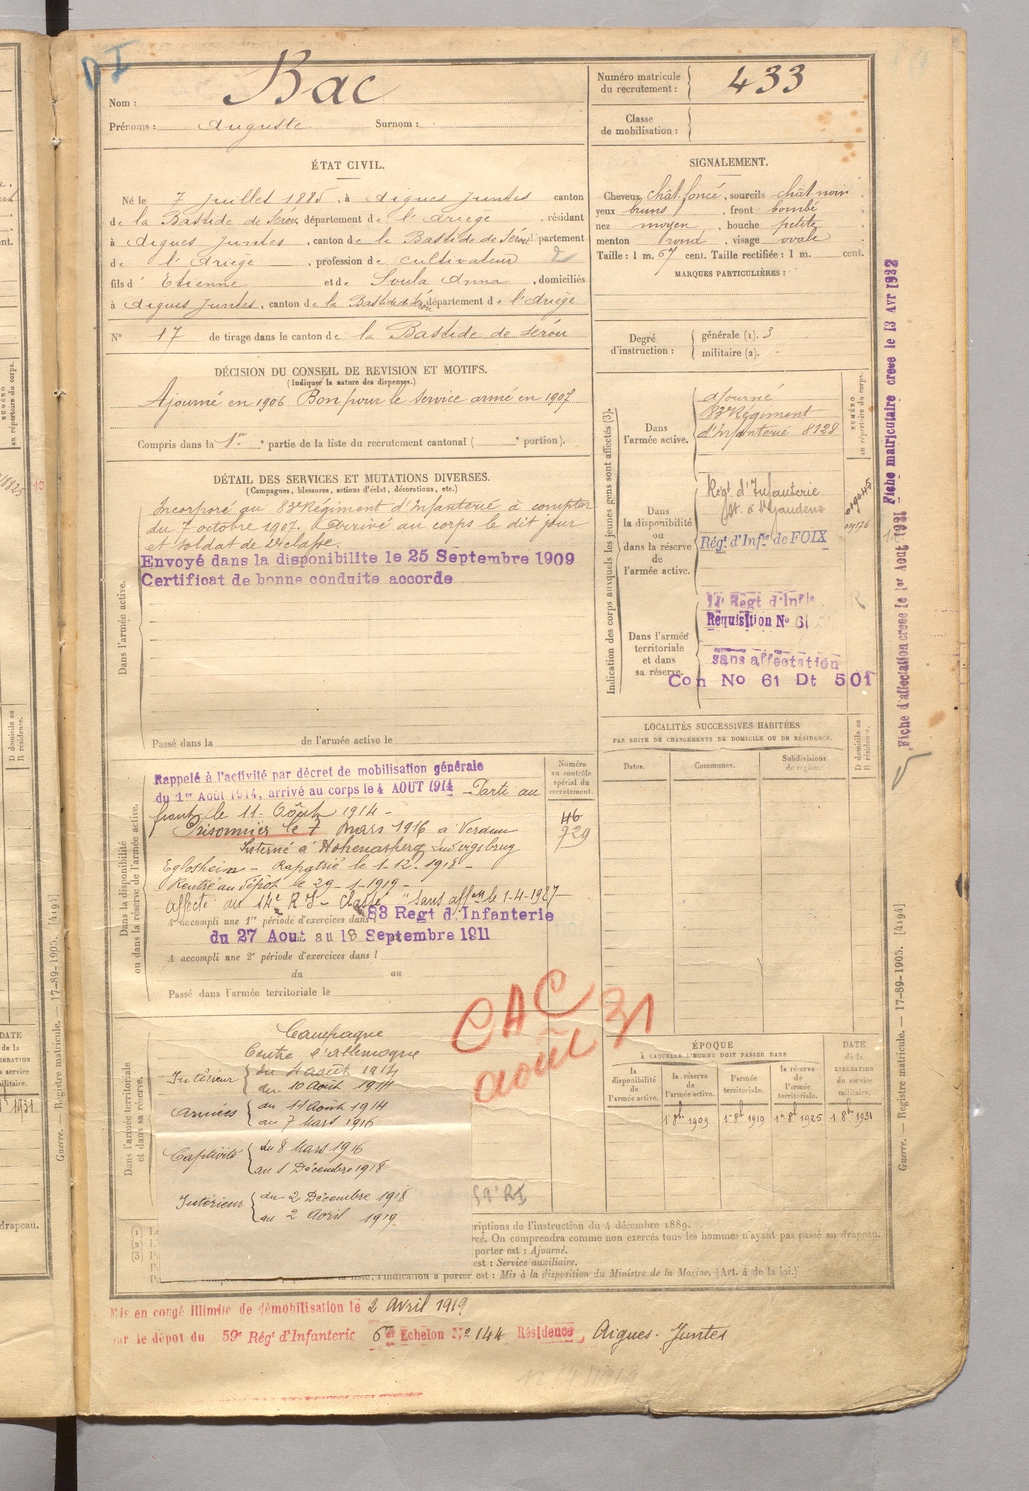 DI
Nom : Bac
Prénoms : Auguste Surnom :
Numéro matricule du recrutement : 433
Classe de mobilisation :
ÉTAT CIVIL.
Né le 7 juillet 1885, à Aigues Juntes canton
de la Bastide de Sérou, département de l'Ariège, résidant
à Aigues Juntes, canton de la Bastide de Sérou département
de l'Ariège, profession de cultivateur
fils d'Etienne et de Soula Anna, domiciliés
à Aigues Juntes, canton de la Bastide de Sérou département de l'Ariège
N° 17 de tirage dans le canton de la Bastide de Sérou
SIGNALEMENT.
Cheveux chât. foncé, sourcils chât. noir
yeux bruns, front bombé
nez moyen, bouche petite
menton rond, visage ovale
Taille : 1 m. 67 cent. Taille rectifiée : 1 m. cent.
MARQUES PARTICULIÈRES :
Degré d'instruction : générale (1). 3
militaire (2).
DÉCISION DU CONSEIL DE REVISION ET MOTIFS.
(Indiquer la nature des dispenses.)
Ajourné en 1906 Bon pour le service armé en 1907
Compris dans la 1re partie de la liste du recrutement cantonal ( e portion).
DÉTAIL DES SERVICES ET MUTATIONS DIVERSES.
(Campagnes, blessures, actions d'éclat, décorations, etc.)
Dans l'armée active.
Incorporé au 83e Régiment d'Infanterie à compter
du 7 octobre 1907. Arrivé au corps le dit jour
et soldat de 2e classe.
Envoyé dans la disponibilite le 25 Septembre 1909
Certificat de bonne conduite accorde
Passé dans la de l'armée active le
Indication des corps auxquels les jeunes gens sont affectés (3).
NUMÉRO au répertoire du corps.
Dans l'armée active.
ajourné
83e Régiment
d'Infanterie 8128
Dans la disponibilité ou dans la réserve de l'armée active.
Régt d'Infanterie
St. Gaudens
Régt d'Infie de FOIX
Dans l'armée territoriale et dans sa réserve.
14e Regt d'Infie
Requisition No 61
sans affectation
Con No 61 Dt 501
Fiche d'affectation creee le 1er Aout 1931 Fiche matriculaire creee le 13 Avr 1932
LOCALITÉS SUCCESSIVES HABITÉES
PAR SUITE DE CHANGEMENTS DE DOMICILE OU DE RÉSIDENCE.
Dates. Communes. Subdivisions de région. D domicile ou R résidence.
Dans la disponibilité ou dans la réserve de l'armée active.
Numéro au contrôle spécial du recrutement.
46
729
Rappelé à l'activité par décret de mobilisation générale
du 1er Août 1914, arrivé au corps le 4 AOUT 1914 Parti au
front le 11 Août 1914 -
Prisonnier le 7 mars 1916 à Verdun
Interné à Hohenasperg Ludwigsburg
Eglosheim - Rapatrié le 1.12.1918 -
Rentré au dépôt le 29-1-1919 -
Affecté au 14e R I - Classé "sans affon le 1-4-1927
A accompli une 1re période d'exercices dans l 83 Regt d'Infanterie
du 27 Aout au 18 Septembre 1911
A accompli une 2e période d'exercices dans l
du au
Passé dans l'armée territoriale le
CAC
août 31
Dans l'armée territoriale et dans sa réserve.
Campagne
Contre l'Allemagne
Intérieur du 4 août 1914
au 10 Août 1914
Armées du 11 Août 1914
au 7 Mars 1916
Captivité du 8 Mars 1916
au 1 Décembre 1918
Intérieur du 2 Décembre 1918
au 2 Avril 1919
59e RI
ÉPOQUE
À LAQUELLE L'HOMME DOIT PASSER DANS
la disponibilité de l'armée active. la réserve de l'armée active. l'armée territoriale. la réserve de l'armée territoriale. DATE de la LIBÉRATION du service militaire.
1r 8bre 1909 1r 8bre 1919 1er 8bre 1925 1r 8bre 1931
criptions de l'instruction du 4 décembre 1889.
rcé. On comprendra comme non exercés tous les hommes n'ayant pas passé au drapeau.
porter est : Ajourné.
est : Service auxiliaire.
la liste, l'indication à porter est : Mis à la disposition du Ministre de la Marine. (Art. 4 de la loi.)
Guerre. — Registre matricule. — 17-89-1905. [4194]
Guerre. — Registre matricule. — 17-89-1905. [4194]
Mis en congé illimité de démobilisation le 2 Avril 1919
sur le dépot du 59e Régt d'Infanterie 6e Echelon No 144 Résidence, Aigues-Juntes